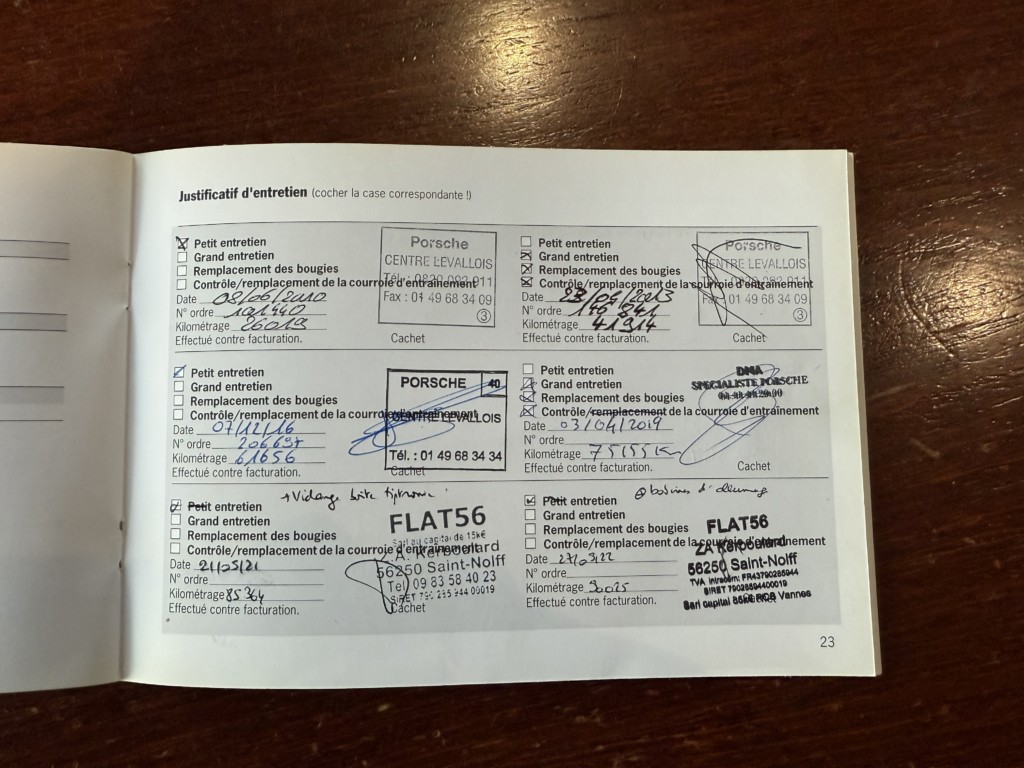 Justificatif d'entretien (cocher la case correspondante !)
Petit entretien
Grand entretien
Remplacement des bougies
Contrôle/remplacement de la courroie d'entraînement
Date 08/06/2010
N° ordre 101440
Kilométrage 26019
Effectué contre facturation.
Porsche
CENTRE LEVALLOIS
Tél.: 0820 082 911
Fax : 01 49 68 34 09
3
Cachet
Petit entretien
Grand entretien
Remplacement des bougies
Contrôle/remplacement de la courroie d'entraînement
Date 23/04/2013
N° ordre
Kilométrage 41914
Effectué contre facturation.
Porsche
CENTRE LEVALLOIS
Fax : 01 49 68 34 09
3
Cachet
Petit entretien
Grand entretien
Remplacement des bougies
Contrôle/remplacement de la courroie d'entraînement
Date 07/12/16
N° ordre 206697
Kilométrage 61656
Effectué contre facturation.
PORSCHE 40
CENTRE LEVALLOIS
Tél. : 01 49 68 34 34
Cachet
Petit entretien
Grand entretien
Remplacement des bougies
Contrôle/remplacement de la courroie d'entraînement
Date 03/04/2019
N° ordre
Kilométrage 75155 K
Effectué contre facturation.
DMA
SPECIALISTE PORSCHE
Cachet
+ Vidange boite tiptronic
Petit entretien
Grand entretien
Remplacement des bougies
Contrôle/remplacement de la courroie d'entraînement
Date 21/05/21
N° ordre
Kilométrage 85364
Effectué contre facturation.
FLAT56
Sarl au capital de 15k€
ZA Kerboulard
56250 Saint-Nolff
Tel 09 83 58 40 23
Cachet
bobines d'allumage
Petit entretien
Grand entretien
Remplacement des bougies
Contrôle/remplacement de la courroie d'entraînement
Date 27/03/22
N° ordre
Kilométrage 90025
Effectué contre facturation.
FLAT56
ZA Kerboulard
56250 Saint-Nolff
TVA intracom: FR43790285944
SIRET 79028594400019
RCS Vannes
23